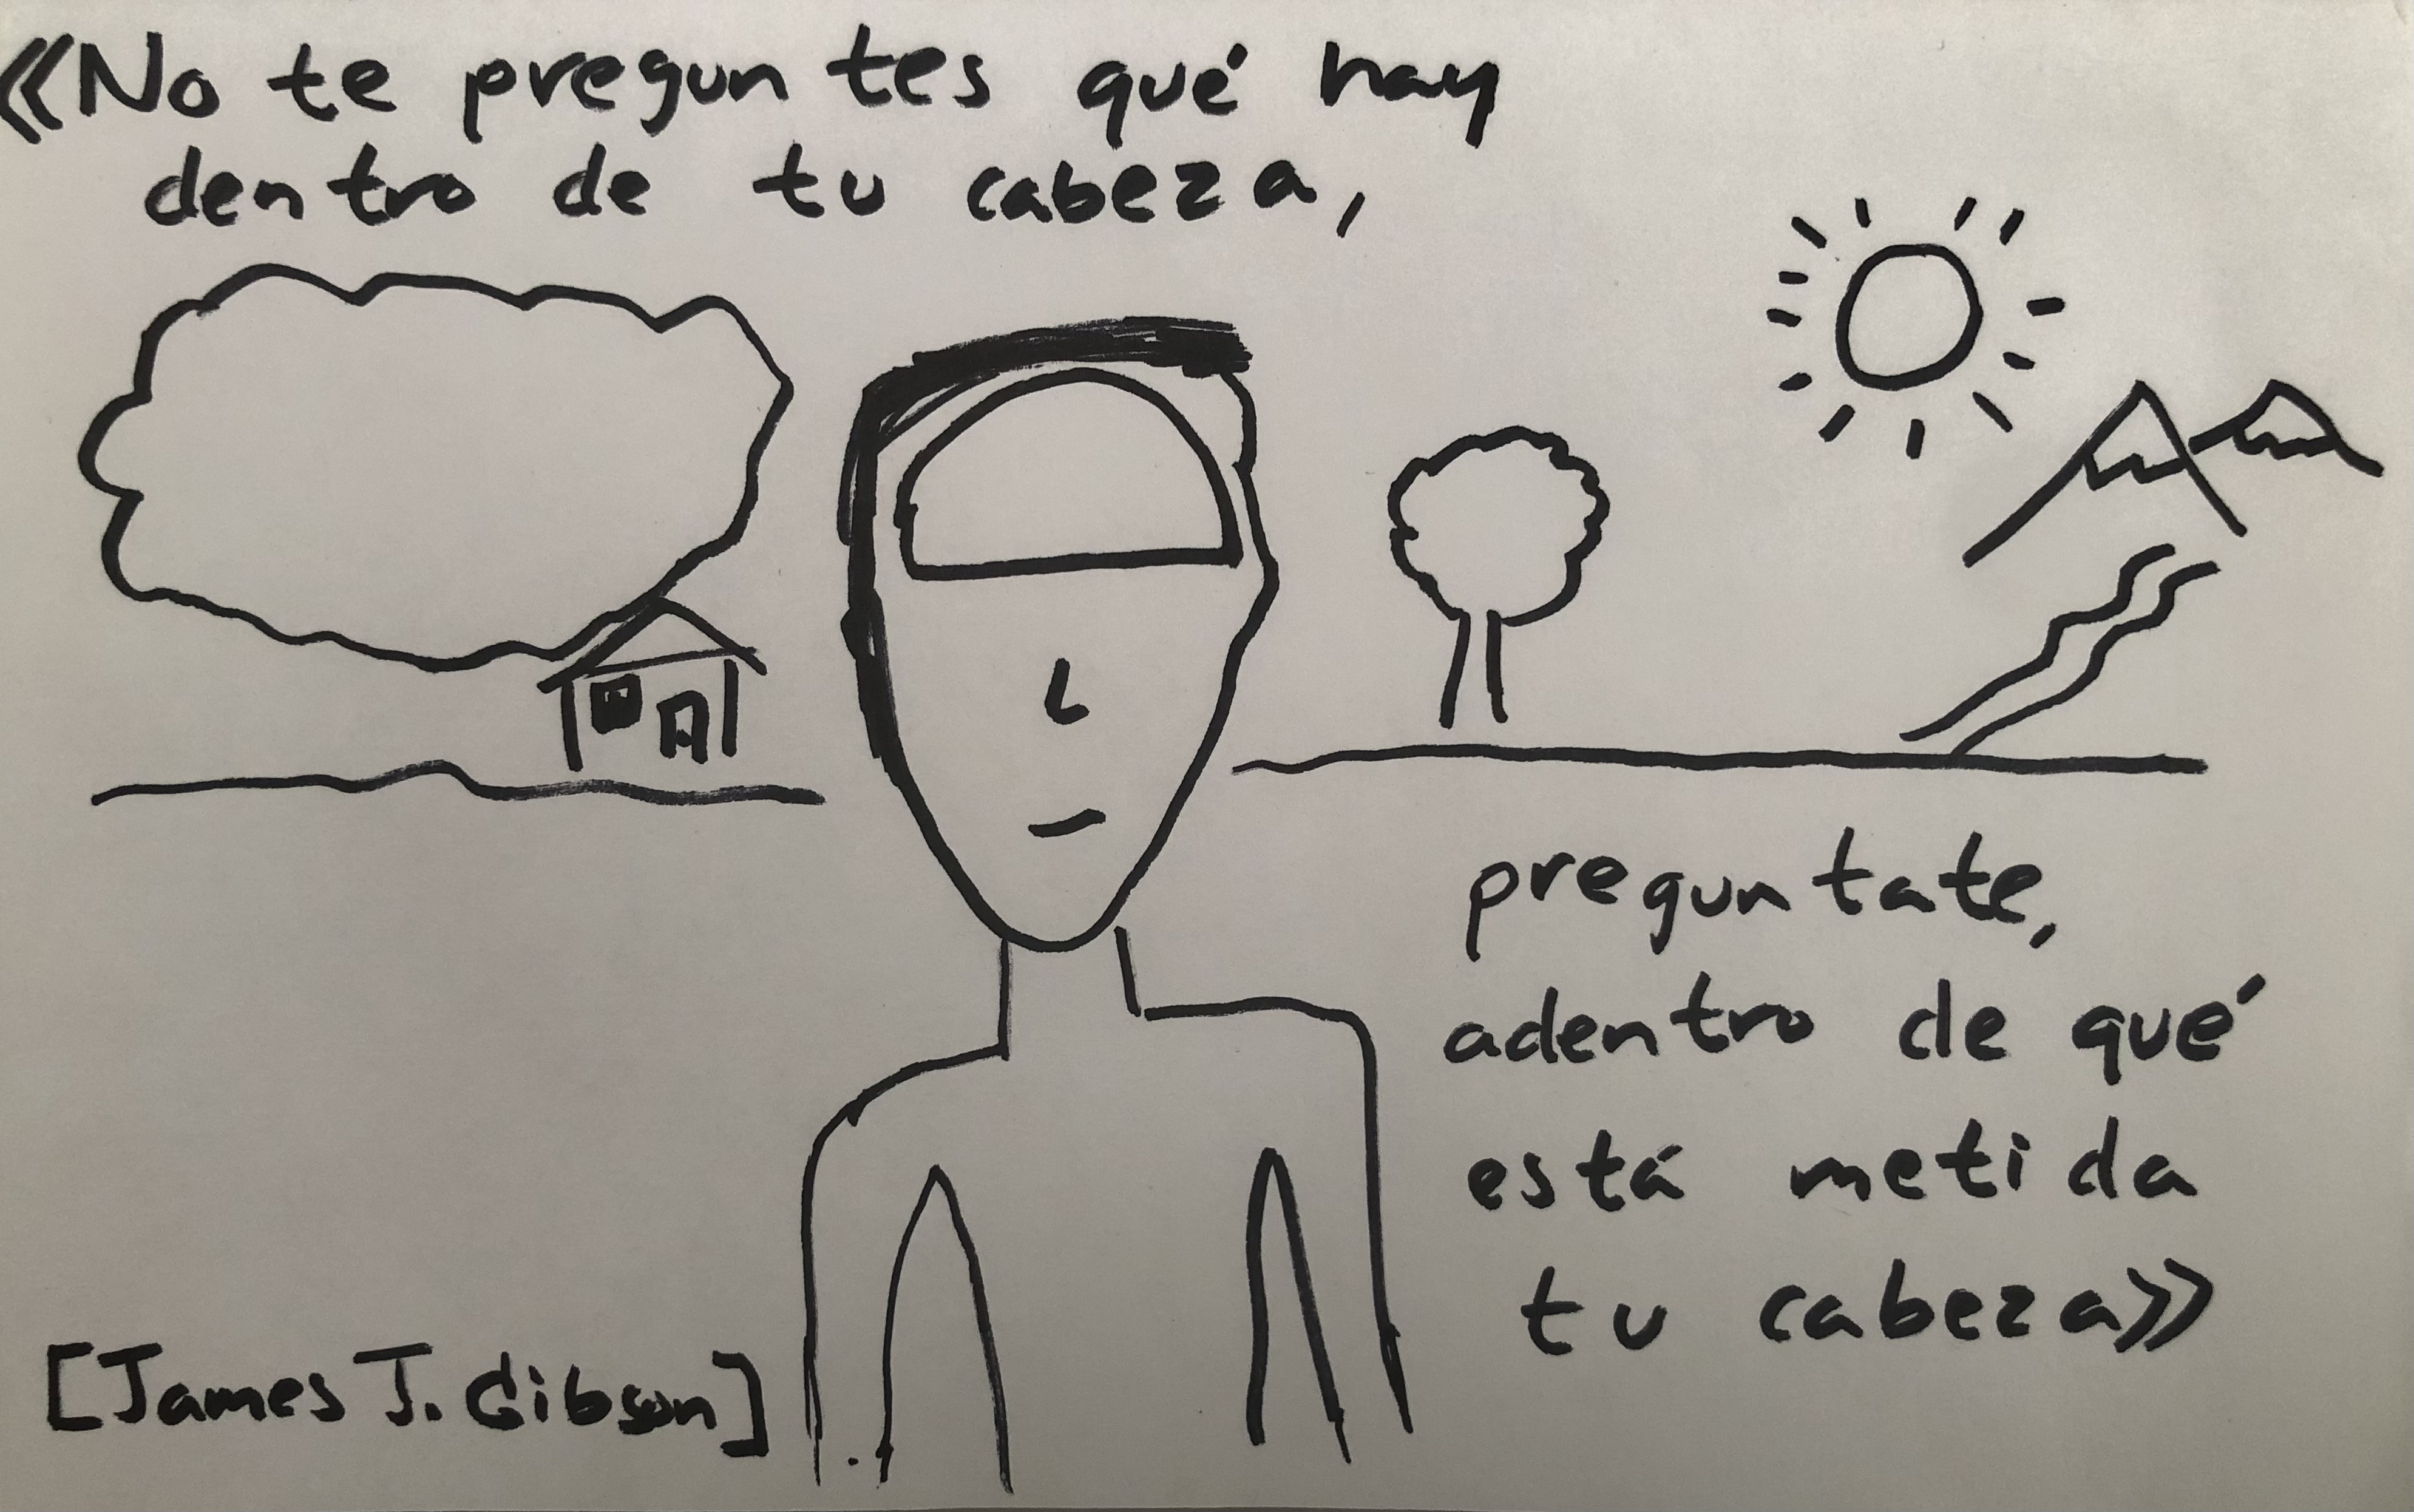 «No te preguntes qué hay
dentro de tu cabeza,
preguntate,
adentro de qué
está metida
tu cabeza»
[James J. Gibson]